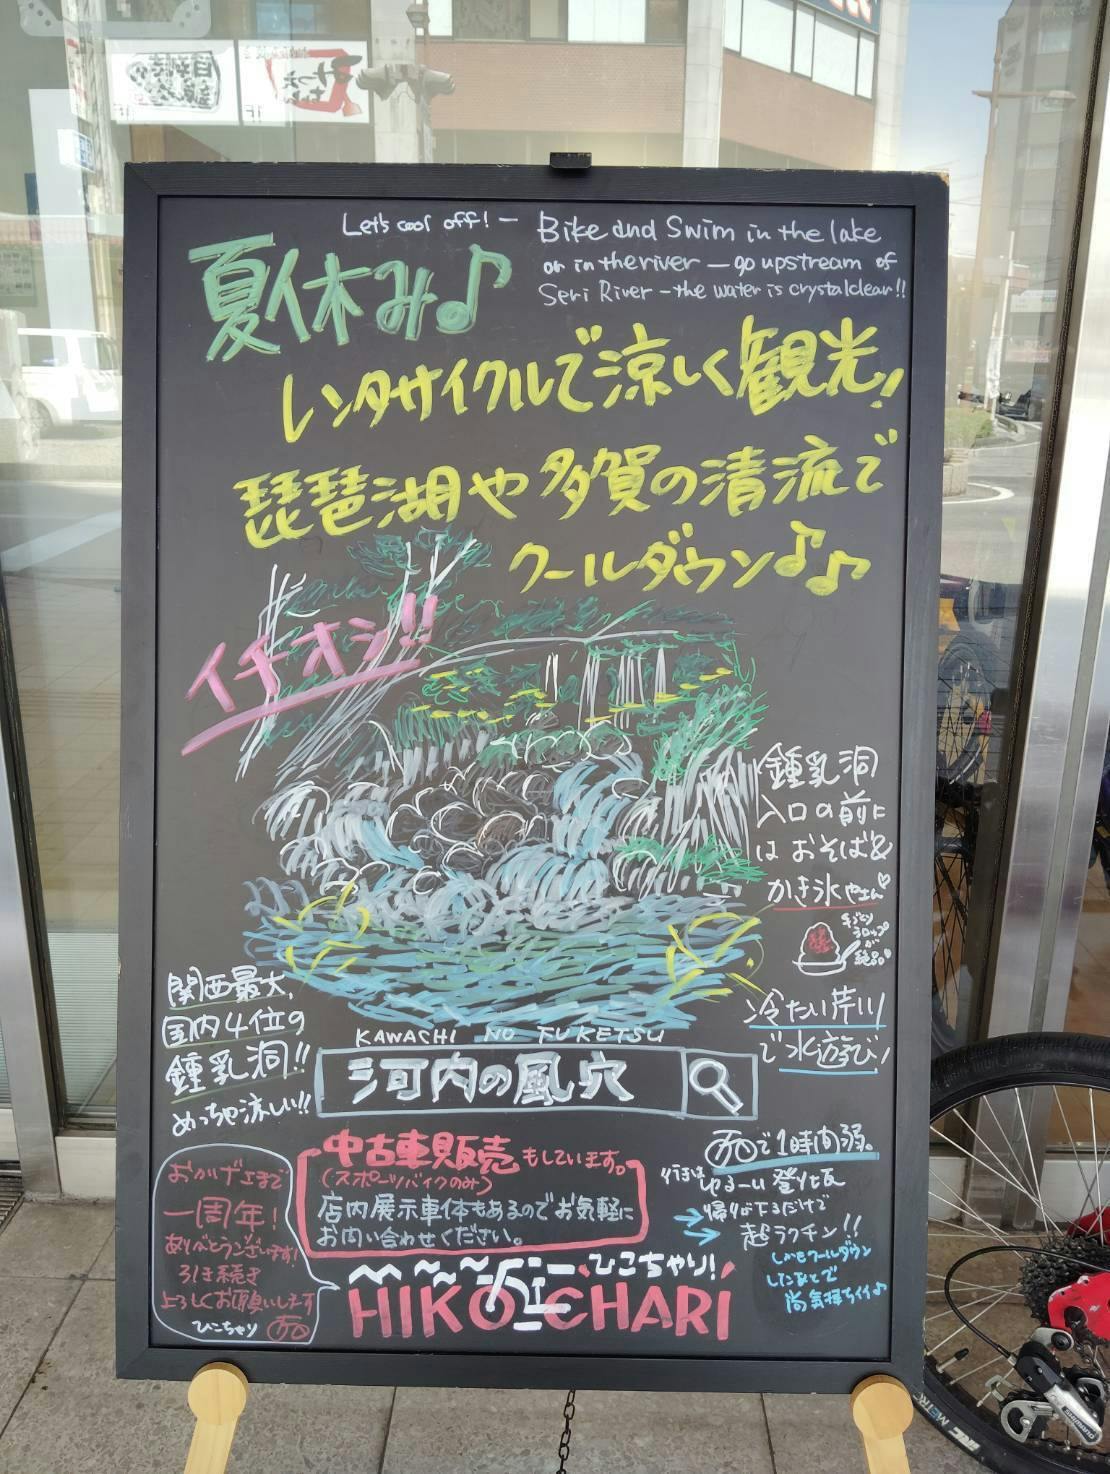 Let's cool off! — Bike and Swim in the lake
or in the river — go upstream of
Seri River — the water is crystal clear!!
夏休み♪
レンタサイクルで涼しく観光!
琵琶湖や多賀の清流で
クールダウン♪♪
イチオシ!!
鍾乳洞
入口の前に
はおそば&
かき氷やさん♡
手づくり
シロップ
が
絶品♡
冷たい芹川
で水遊び!
関西最大、
国内4位の
鍾乳洞!!
めっちゃ涼しい!!
KAWACHI NO FUKETSU
河内の風穴
中古車販売もしています。
(スポーツバイクのみ)
店内展示車体もあるのでお気軽に
お問い合わせください。
で1時間弱。
行きはゆるーい登り坂
帰りは下るだけで
超ラクチン!!
しかもクールダウン
したあとで
尚気持ちイイ♪
おかげさまで
一周年!
ありがとうございます!
引き続き
よろしくお願いします
ひこちゃり
ひこちゃり!
HIKO CHARI